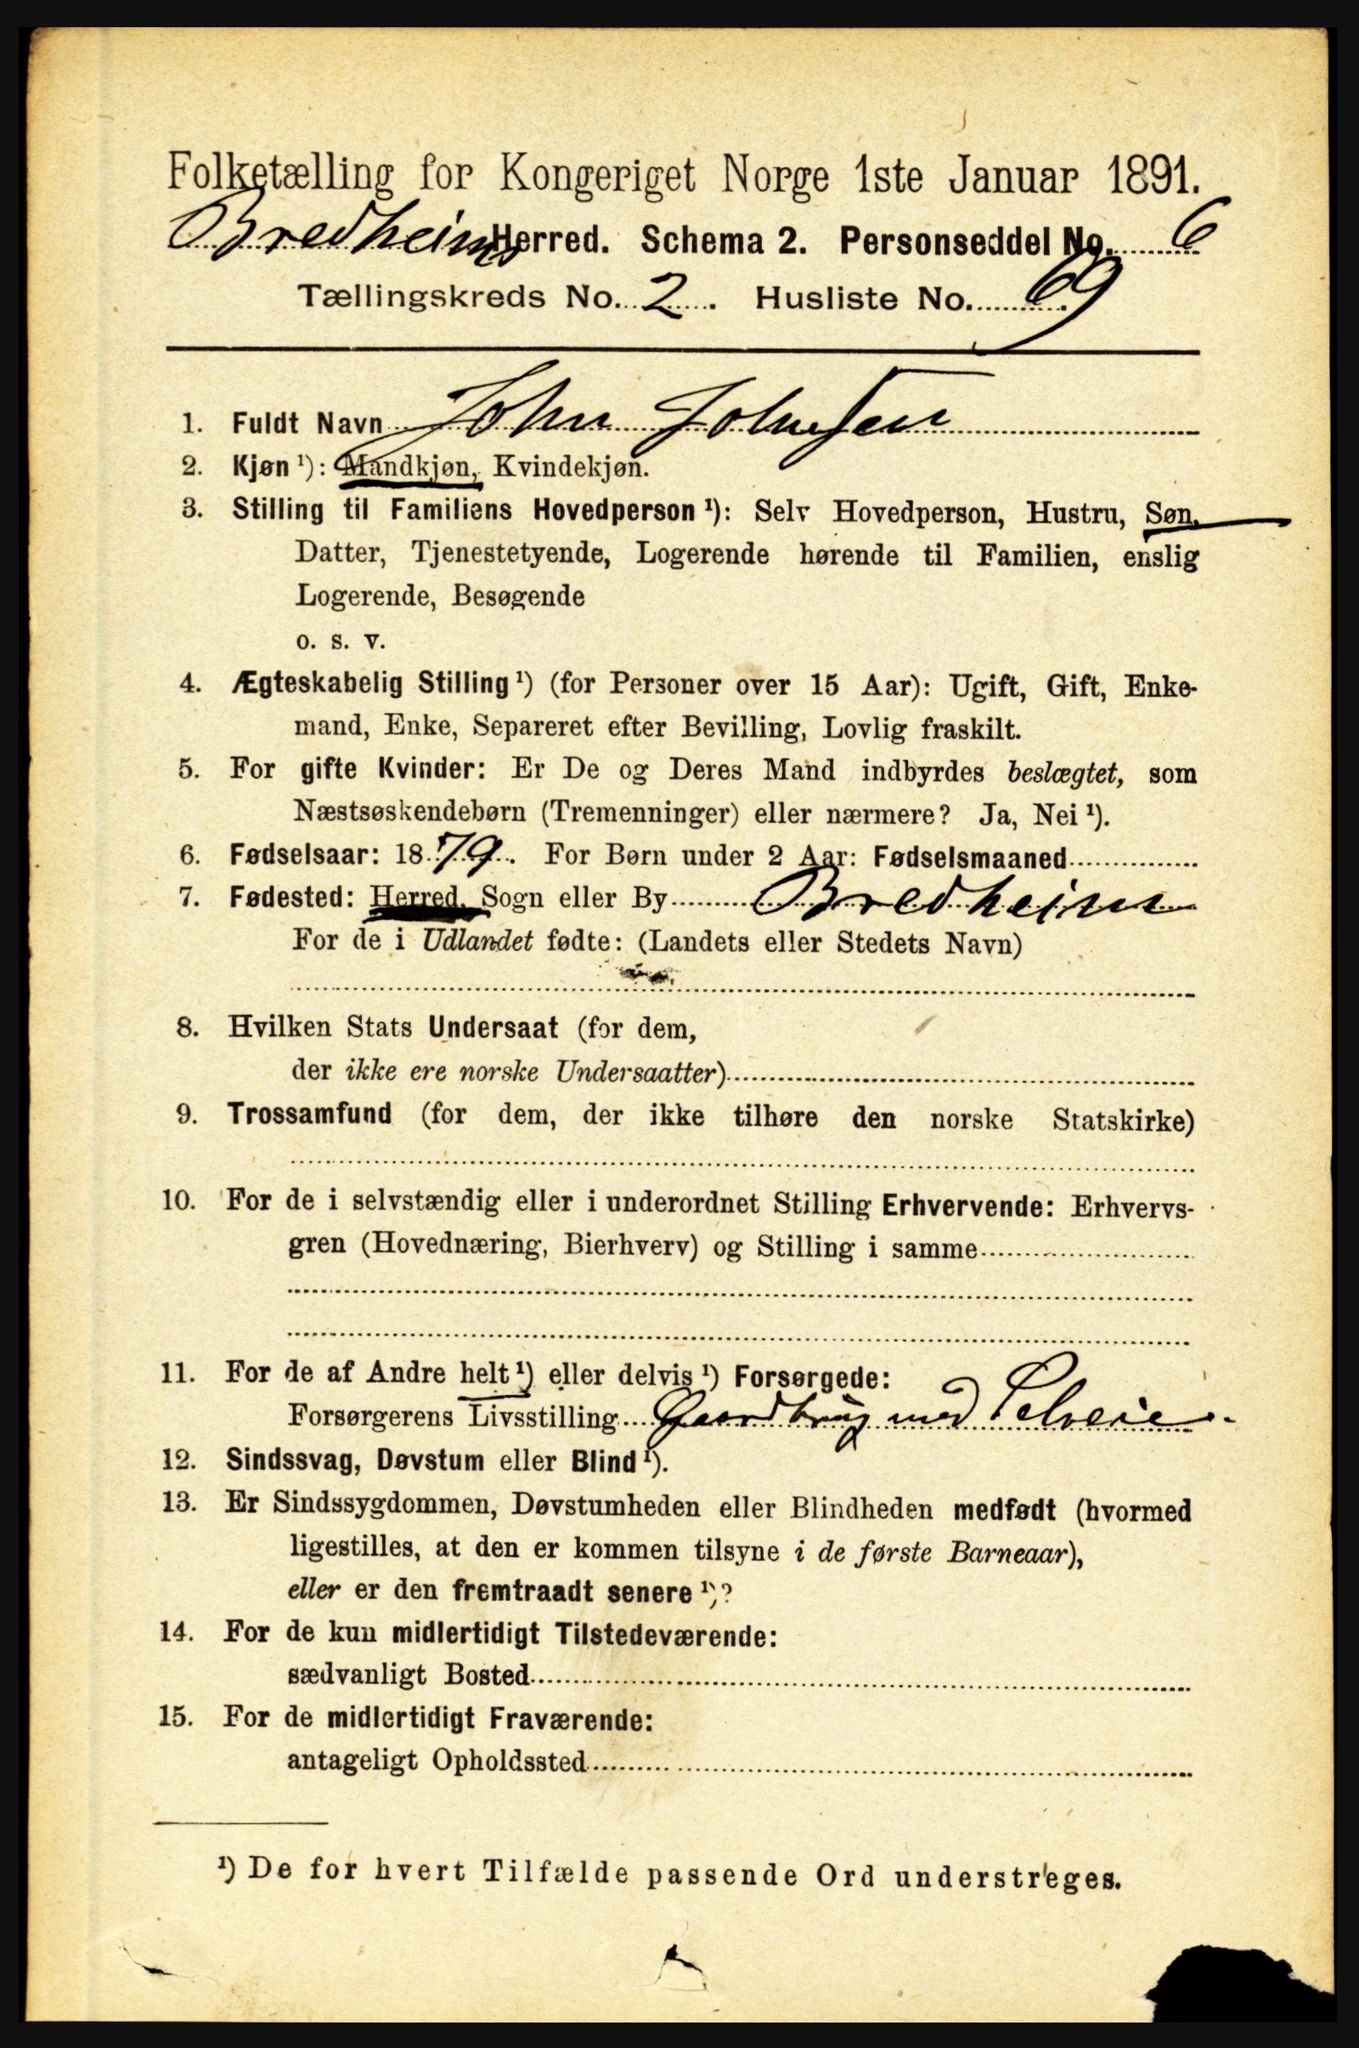 Folketælling for Kongeriget Norge 1ste Januar 1891.
Bredheims Herred. Schema 2. Personseddel No. 6
Tællingskreds No. 2. Husliste No. 69
1. Fuldt Navn John Johnsen
2. Kjøn ¹): Mandkjøn, Kvindekjøn.
3. Stilling til Familiens Hovedperson ¹): Selv Hovedperson, Hustru, Søn,
Datter, Tjenestetyende, Logerende hørende til Familien, enslig
Logerende, Besøgende
o. s. v.
4. Ægteskabelig Stilling ¹) (for Personer over 15 Aar): Ugift, Gift, Enke-
mand, Enke, Separeret efter Bevilling, Lovlig fraskilt.
5. For gifte Kvinder: Er De og Deres Mand indbyrdes beslægtet, som
Næstsøskendebørn (Tremenninger) eller nærmere? Ja, Nei ¹).
6. Fødselsaar: 1879. For Børn under 2 Aar: Fødselsmaaned
7. Fødested: Herred, Sogn eller By Bredheim
For de i Udlandet fødte: (Landets eller Stedets Navn)
8. Hvilken Stats Undersaat (for dem,
der ikke ere norske Undersaatter)
9. Trossamfund (for dem, der ikke tilhøre den norske Statskirke)
10. For de i selvstændig eller i underordnet Stilling Erhvervende: Erhvervs-
gren (Hovednæring, Bierhverv) og Stilling i samme
11. For de af Andre helt ¹) eller delvis ¹) Forsørgede:
Forsørgerens Livsstilling Gaardbrug med Selveie.
12. Sindssvag, Døvstum eller Blind ¹).
13. Er Sindssygdommen, Døvstumheden eller Blindheden medfødt (hvormed
ligestilles, at den er kommen tilsyne i de første Barneaar),
eller er den fremtraadt senere ¹)?
14. For de kun midlertidigt Tilstedeværende:
sædvanligt Bosted
15. For de midlertidigt Fraværende:
antageligt Opholdssted
¹) De for hvert Tilfælde passende Ord understreges.